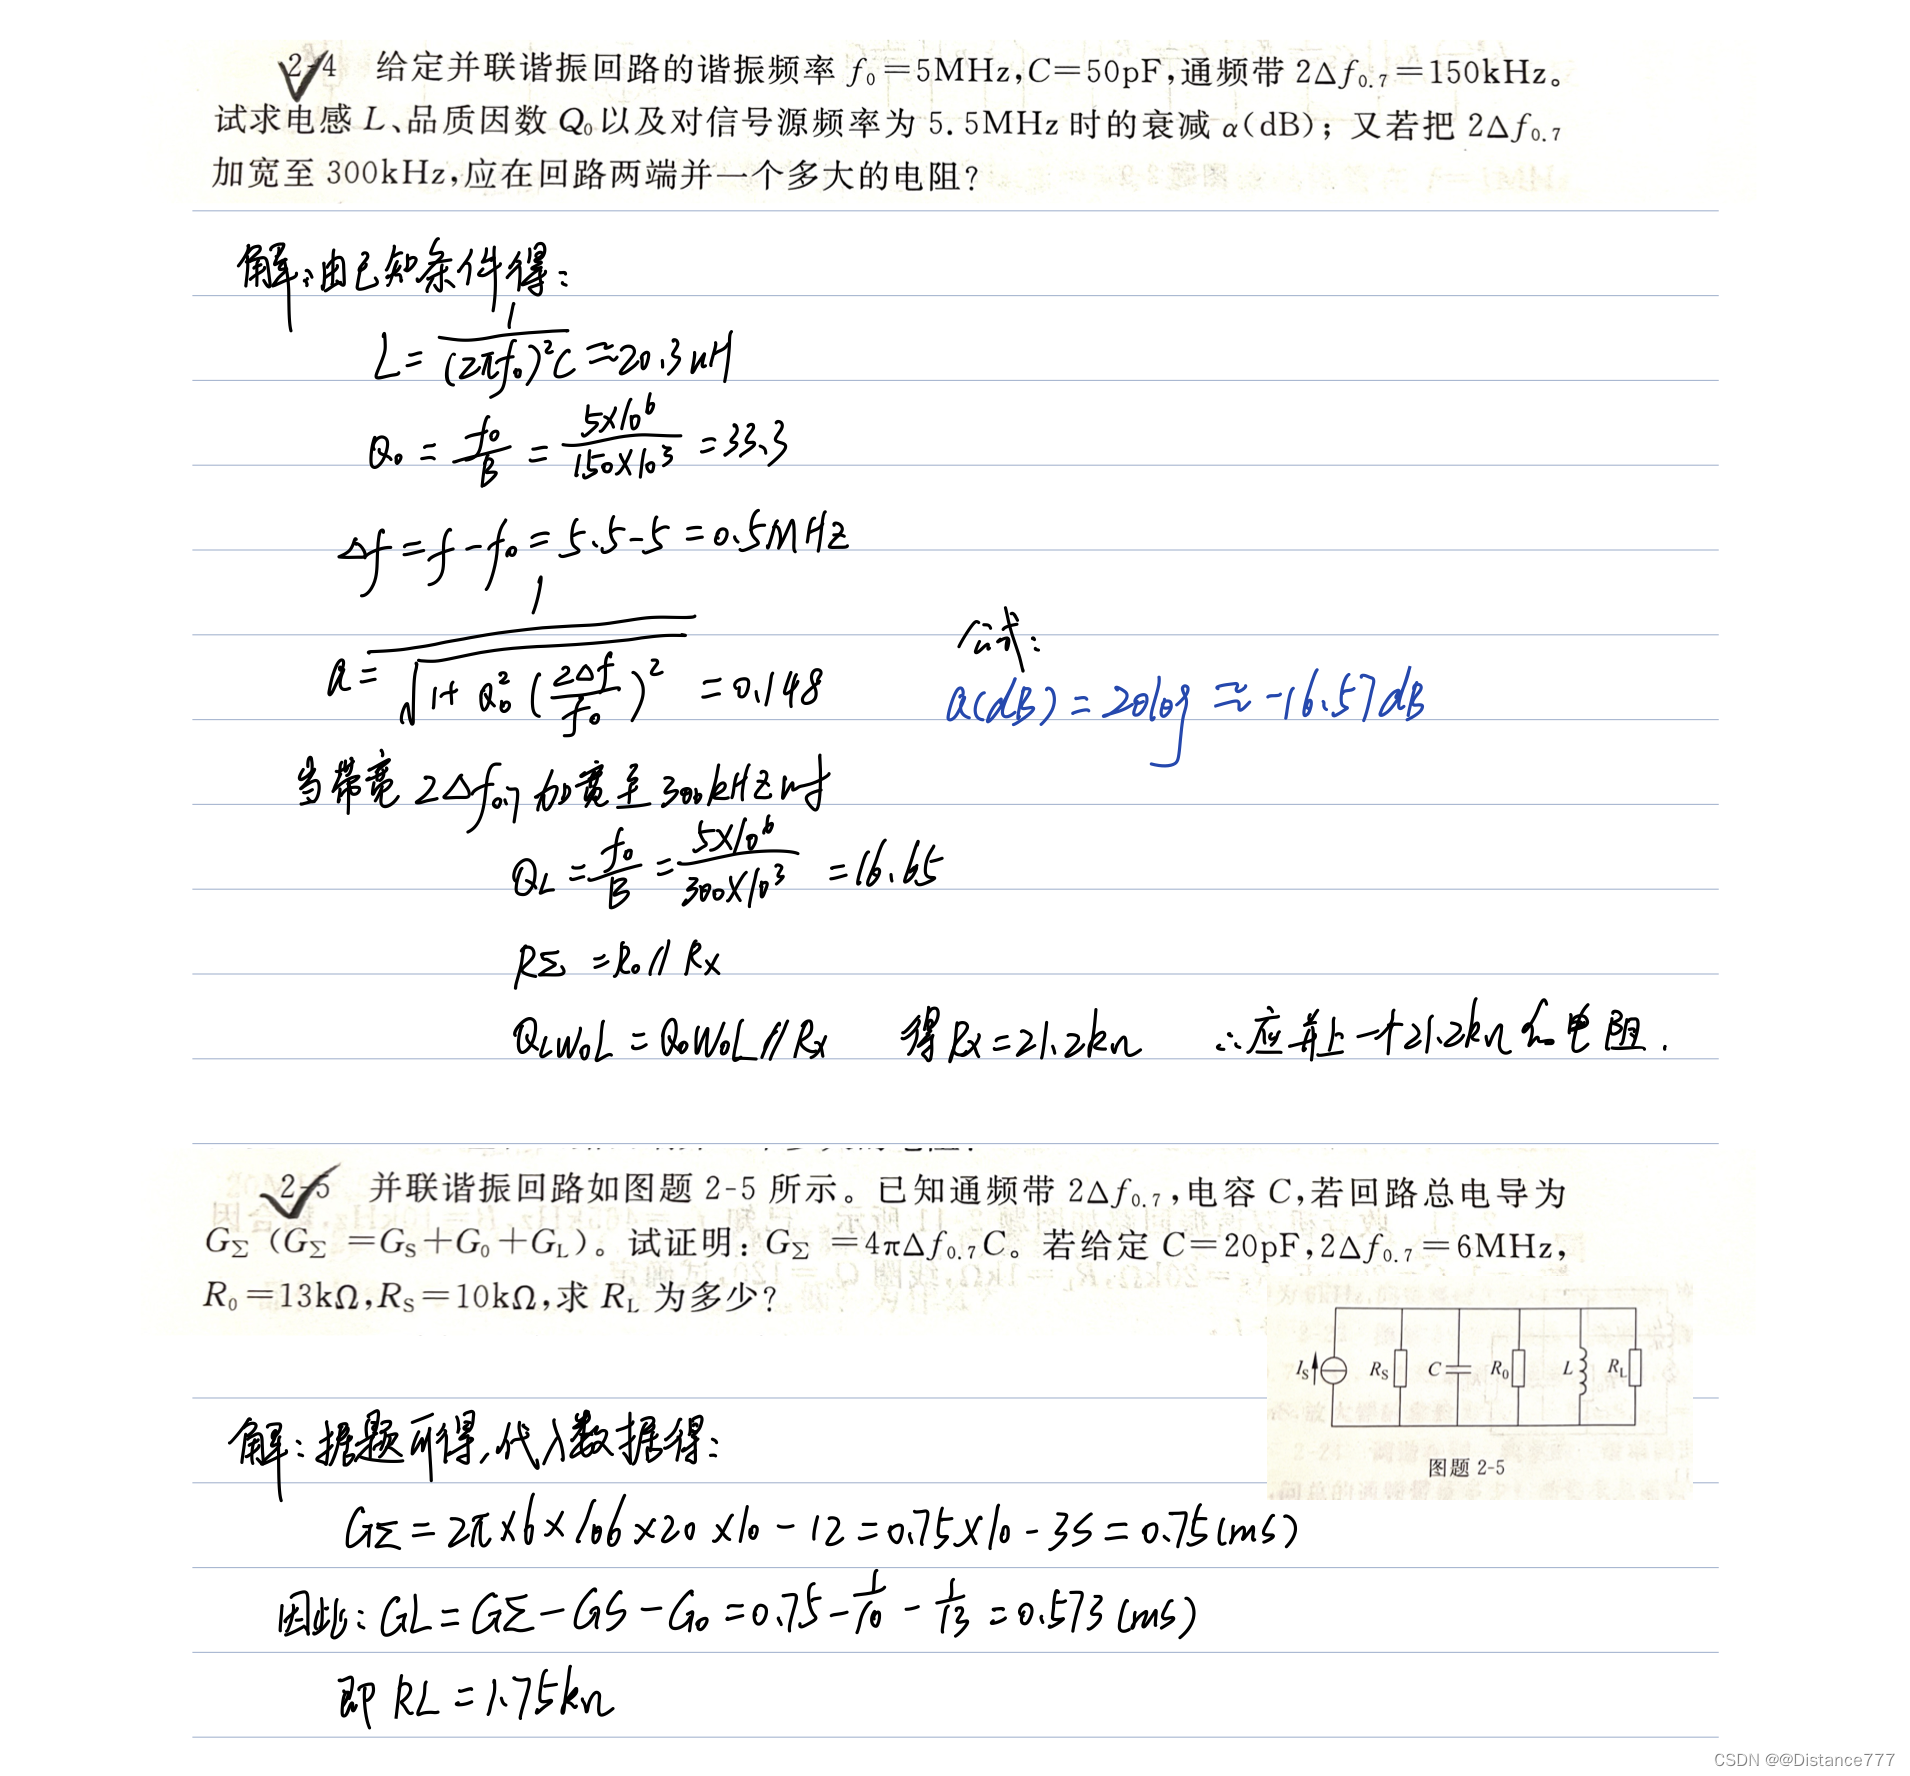 2-4 给定并联谐振回路的谐振频率 f₀=5MHz,C=50pF,通频带 2Δf₀.₇=150kHz。
试求电感 L、品质因数 Q₀ 以及对信号源频率为 5.5MHz 时的衰减 α(dB)；又若把 2Δf₀.₇
加宽至 300kHz,应在回路两端并一个多大的电阻?
解:由已知条件得:
L = 1/((2πf₀)²C) ≈ 20.3uH
Q₀ = f₀/B = 5×10⁶/(150×10³) = 33.3
Δf = f - f₀ = 5.5 - 5 = 0.5MHz
a = 1/√(1+Q₀²(2Δf/f₀)²) = 0.148
公式:
a(dB) = 20log ≈ -16.57dB
当带宽 2Δf₀.₇ 加宽至 300kHz时
QL = f₀/B = 5×10⁶/(300×10³) = 16.65
RΣ = R₀ // Rx
QLW₀L = Q₀W₀L // Rx 得 Rx = 21.2kΩ ∴应并上一个21.2kΩ的电阻.
2-5 并联谐振回路如图题 2-5 所示。已知通频带 2Δf₀.₇,电容 C,若回路总电导为
GΣ (GΣ =GS+G₀+GL)。试证明: GΣ =4πΔf₀.₇C。若给定 C=20pF,2Δf₀.₇=6MHz,
R₀=13kΩ,RS=10kΩ,求 RL 为多少?
IS RS C R₀ L RL
图题 2-5
解:据题可得,代入数据得:
GΣ = 2π×6×106×20×10-12 = 0.75×10-3S = 0.75(mS)
因此: GL = GΣ - GS - G₀ = 0.75 - 1/10 - 1/13 = 0.573 (mS)
即 RL = 1.75kΩ
CSDN @@Distance777